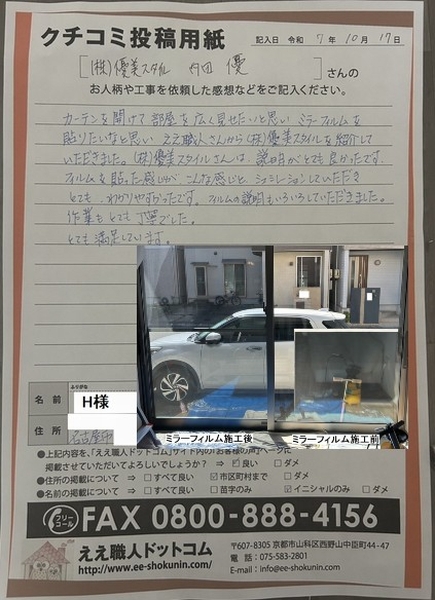 クチコミ投稿用紙
記入日 令和 7年 10月 17日
[(株)優美スタイル 内田 優]さんの
お人柄や工事を依頼した感想などをご記入ください。
カーテンを開けて部屋を広く見せたいと思い ミラーフィルムを
貼りたいなと思い ええ職人さんから(株)優美スタイルを紹介して
いただきました。(株)優美スタイルさんは、説明がとても良かったです。
フィルムを貼った感じがこんな感じと、シュミレーションしていただき
とても、わかりやすかったです。フィルムの説明もいろいろしていただきました。
作業もとても丁寧でした。
とても満足しています。
ミラーフィルム施工後
ミラーフィルム施工前
ふりがな
名前 H様
住所 名古屋市
●上記内容を、「ええ職人ドットコム」サイト内の「お客様の声」ページに
掲載させていただいてよろしいでしょうか? ⇒ ☑良い □ダメ
●住所の掲載について ⇒ □すべて良い ☑市区町村まで □ダメ
●名前の掲載について ⇒ □すべて良い □苗字のみ ☑イニシャルのみ □ダメ
フリーコール FAX 0800-888-4156
ええ職人ドットコム
http://www.ee-shokunin.com/
〒607-8305 京都市山科区西野山中臣町44-47
電話:075-583-2801
E-mail:info@ee-shokunin.com